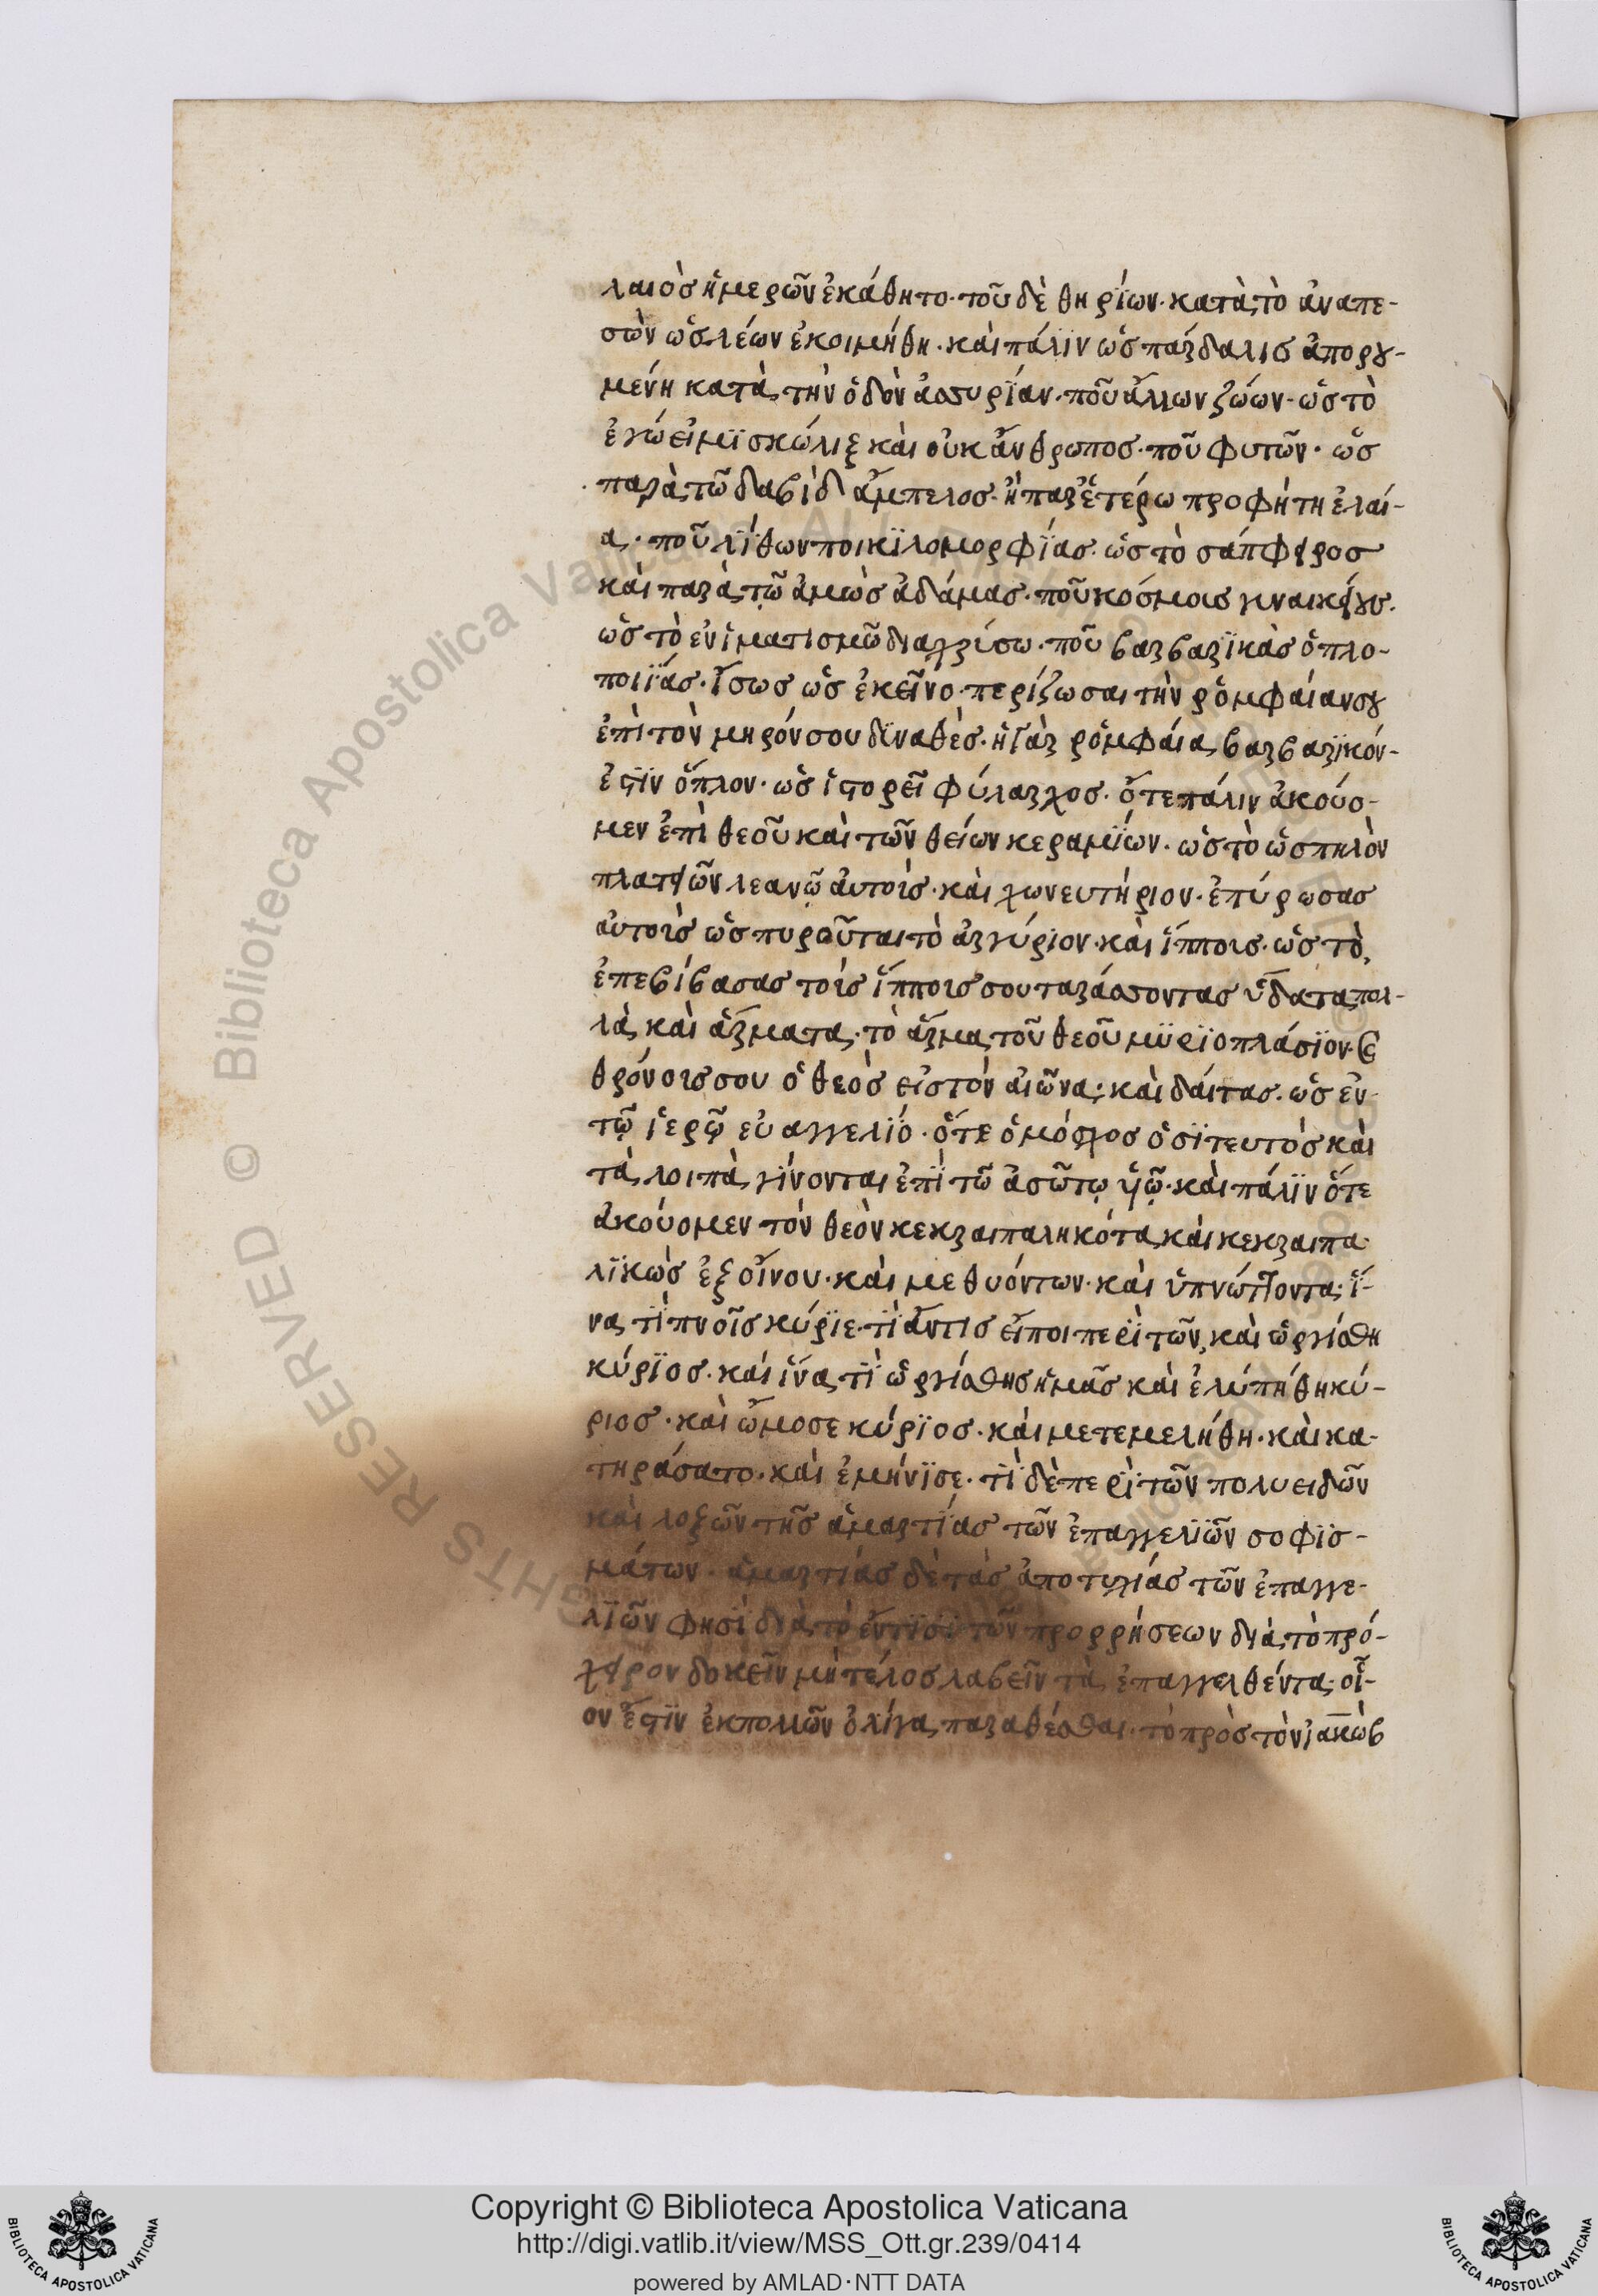 λαιὸσ ἡμερῶν ἐκάθητο· τοῦ δὲ θηρίων· κατὰ τὸ ἀναπε-
σὼν ὡσ λέων ἐκοιμήθη· καὶ πάλϊν ὡσ πάρδαλισ ἀπορου-
μένη κατὰ τὴν ὁδὸν ἀσσυρΐαν· ποῦ ἄλλων ζώων· ὡσ τὸ
ἐγώ εἰμϊ σκώλιξ καὶ οὐκ ἄνθρωποσ· ποῦ φυτῶν· ὡσ
παρὰ τῶ δαβὶδ ἄμπελοσ· ἢ παρ ἑτέρω προφήτη ἐλαί-
α· ποῦ λΐθων ποικϊλομορφΐασ· ὡσ τὸ σάπφειροσ
καὶ παρὰ τῷ ἀμὼσ ἀδάμασ· ποῦ κόσμοισ γυναικείουσ·
ὡσ τὸ ἐν ἱματισμῶ διαχρύσω· ποῦ βαρβαρϊκὰσ ὁπλο-
ποιΐασ· ἴσωσ ὡσ ἐκεῖνο· περίζωσαι τὴν ῥομφαίαν σου
ἐπὶ τὸν μηρόν σου δϊναθὲσ· ἡ γὰρ ῥομφαία βαρβαρϊκόν-
ἐστϊν ὅπλον· ὡσ ἱστορεῖ φύλαρχοσ· ὅτε πάλιν ἀκούο-
μεν ἐπὶ θεοῦ καὶ τῶν θείων κεραμΐων· ὡσ τὸ ὡσ πηλὸν
πλατειῶν λεανῶ αὐτοὶσ· καὶ χωνευτήριον· ἐπύρωσασ
αὐτοὶσ ὡσ πυροῦται τὸ ἀργύρϊον· καὶ ἵπποισ· ὡσ τὸ
ἐπεβίβασασ τοὶσ ἵπποισ σου ταράσσοντασ ὕδατα πολ-
λὰ καὶ ἅρματα· τὸ ἅρμα τοῦ θεοῦ μϋρϊοπλάσϊον· (ϛ
θρόνοισ σου ὁ θεὸσ εἰσ τὸν αἰῶνα· καὶ δαίτασ· ὡσ ἐν
τῷ ἱερῷ εὐαγγελΐο· ὅτε ὁ μόσχοσ ὁ σϊτευτὸσ καὶ
τὰ λοιπὰ γΐνονται ἐπὶ τῶ ἀσῶτῳ υἱῷ· καὶ πάλϊν ὅτε
ἀκούομεν τὸν θεὸν κεκραιπαληκότα καὶ κεκραιπα-
λϊκὼσ ἐξ οἴνου· καὶ μεθυόντων· καὶ ὑπνώττοντα· ἵ-
να τΐ πνοῖσ κύρϊε· τΐ ἄν τισ εἴποι περϊ τῶν, καὶ ὠργίσθη
κύρϊοσ· καὶ ἵνα τΐ ὠργίσθησ ἡμᾶσ καὶ ἐλυπήθη κύ-
ριοσ· καὶ ὤμοσε κύρϊοσ· καὶ μετεμελήθη· καὶ κα-
τηράσατο· καὶ ἐμήνϊσε· τΐ δὲ περϊ τῶν πολυειδῶν
καὶ λοξῶν τῆσ ἁμαρτΐασ τῶν ἐπαγγελϊῶν σοφϊσ-
μάτων· ἁμαρτίασ δὲ τὰσ ἀποτυχίασ τῶν ἐπαγγε-
λϊῶν φησΐ διὰ τὸ ἔν τϊσϊ τῶν προρρήσεων διὰ τὸ πρό-
χειρον δοκεῖν μὴ τέλοσ λαβεῖν τὰ ἐπαγγελθέντα· οἷ-
ον ἔστϊν ἐκ πολλῶν ὀλΐγα παραθέσθαι· τὸ πρὸσ τὸν ἰακὼβ
Copyright © Biblioteca Apostolica Vaticana
http://digi.vatlib.it/view/MSS_Ott.gr.239/0414
powered by AMLAD·NTT DATA
BIBLIOTECA APOSTOLICA VATICANA
BIBLIOTECA APOSTOLICA VATICANA